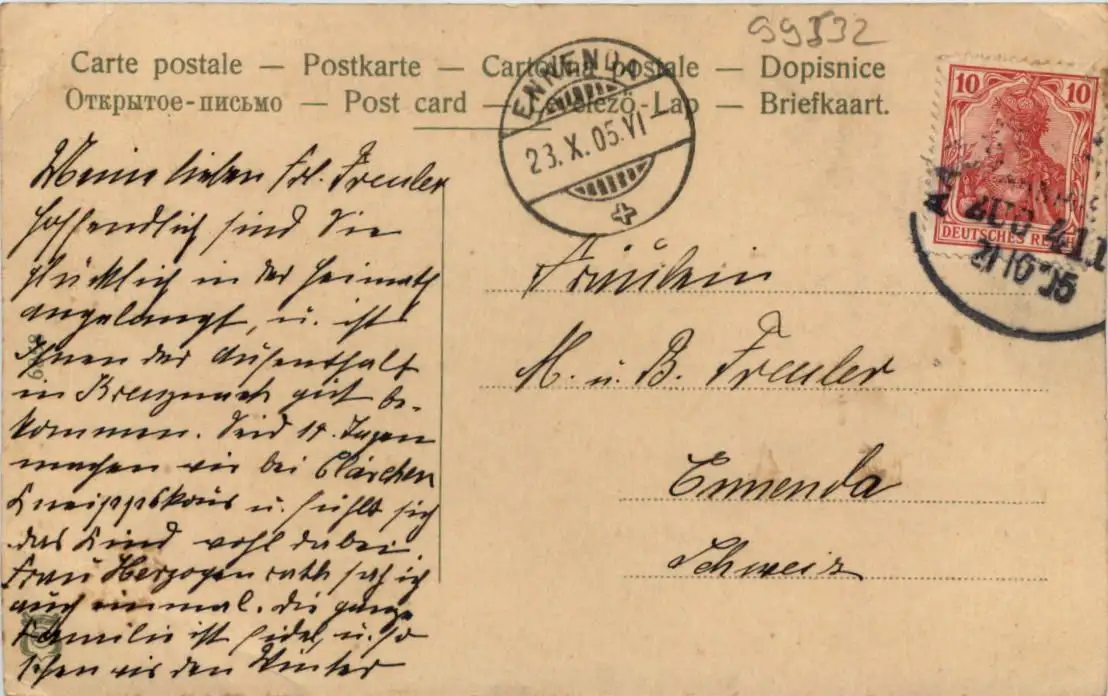 99532
Carte postale — Postkarte — Cartolina postale — Dopisnice
Открытое-письмо — Post card — Levelező-Lap — Briefkaart.
ENNENDA
23.X.05.VI
10 10
DEUTSCHES REICH
Meine lieben Frl. Freuler
Hoffendlich sind Sie
glücklich in der Heimath
angelangt, u. ist
Ihnen der Aufenthalt
in Kreuznach gut be-
kommen. Seid 14 Tagen
machen wir bei Clärchen
Kneippskour u. fühlt sich
das Kind wohl dabei.
Frau Herzogenrath sah ich
auch einmal. die ganze
Familie ist fidel, u. so
sehen wir den Winter
Fräulein
M. u. B. Freuler
Ennenda
Schweiz